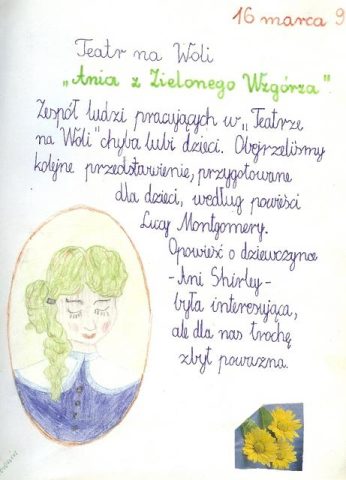 16 marca 9
Teatr na Woli
„Ania z Zielonego Wzgórza".
Zespół ludzi pracujących w „Teatrze
na Woli" chyba lubi dzieci. Obejrzeliśmy
kolejne przedstawienie, przygotowane
dla dzieci, według powieści
Lucy Montgomery.
Opowieść o dziewczynce
- Ani Shirley -
była interesująca,
ale dla nas trochę
zbyt poważna.